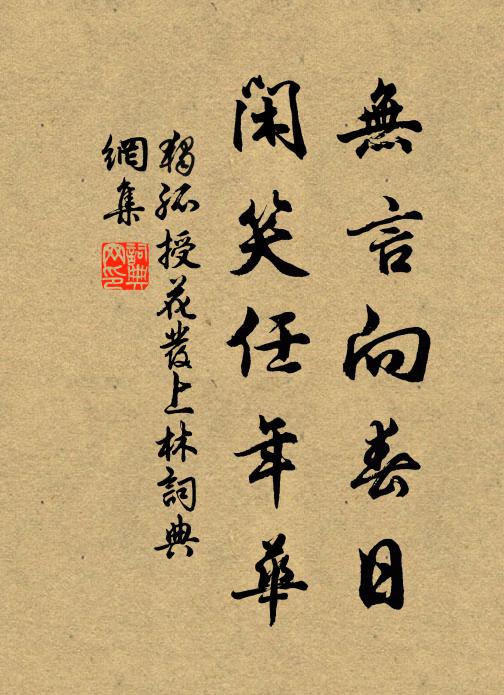 無言向春日
閑笑任年華
獨孤授花發上林詞典
網集
詞典
網印